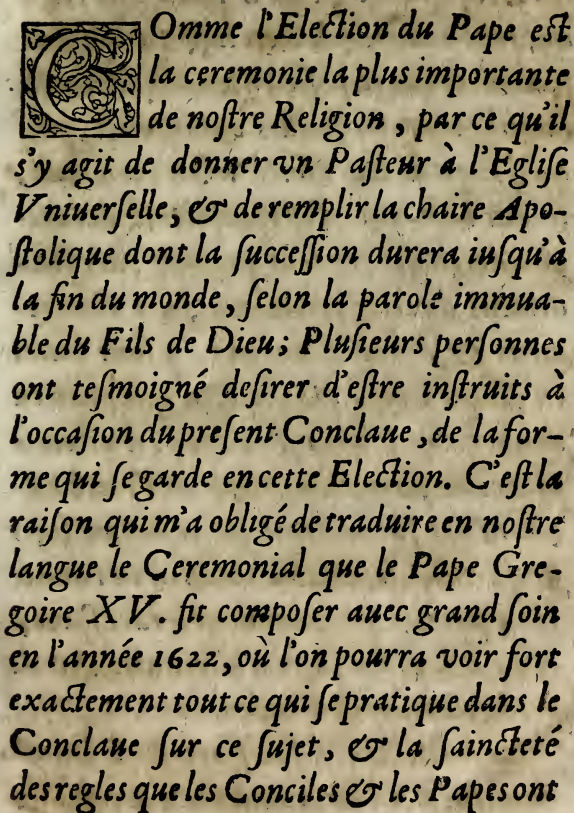 COmme l'Election du Pape est
la ceremonie la plus importante
de nostre Religion, par ce qu'il
s'y agit de donner vn Pasteur à l'Eglise
Vniuerselle, & de remplir la chaire Apo-
stolique dont la succession durera iusqu'à
la fin du monde, selon la parole immua-
ble du Fils de Dieu; Plusieurs personnes
ont tesmoigné desirer d'estre instruits à
l'occasion du present Conclaue, de la for-
me qui se garde en cette Election. C'est la
raison qui m'a obligé de traduire en nostre
langue le Ceremonial que le Pape Gre-
goire XV. fit composer auec grand soin
en l'année 1622, où l'on pourra voir fort
exactement tout ce qui se pratique dans le
Conclaue sur ce sujet, & la saincteté
des regles que les Conciles & les Papes ont